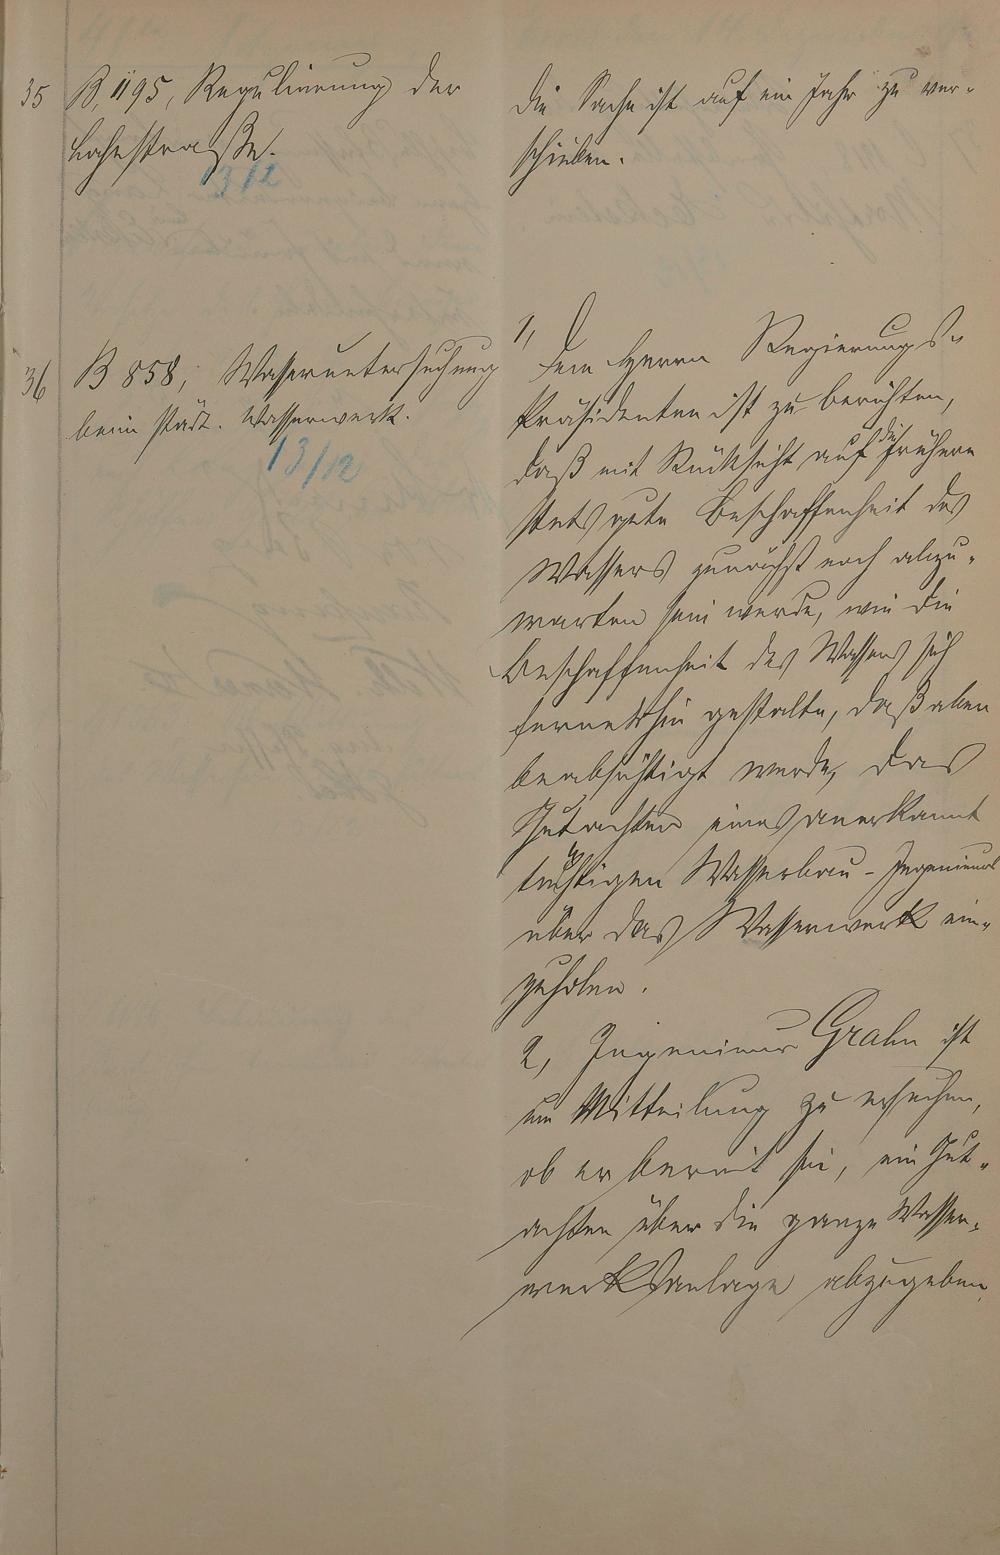 35
B, 1195, Regulierung der
Lohestraße.
3/2
Die Sache ist auf ein Jahr zu ver-
schieben.
36
B 858, Wasseruntersuchung
beim städt. Wasserwerk.
13/12
1,
Dem Herrn Regierungs-
Präsidenten ist zu berichten,
daß mit Rücksicht auf die frühere
stets gute Beschaffenheit des
Wassers zunächst noch abzu-
warten sein werde, wie die
Beschaffenheit des Wassers sich
fernerhin gestalte, daß aber
beabsichtigt werde, das
Gutachten eines anerkannt
tüchtigen Wasserbau-Ingenieurs
über das Wasserwerk ein-
zuholen.
2, Ingenieur Grahn ist
um Mitteilung zu ersuchen,
ob er bereit sei, ein Gut-
achten über die ganze Wasser-
werksanlage abzugeben.